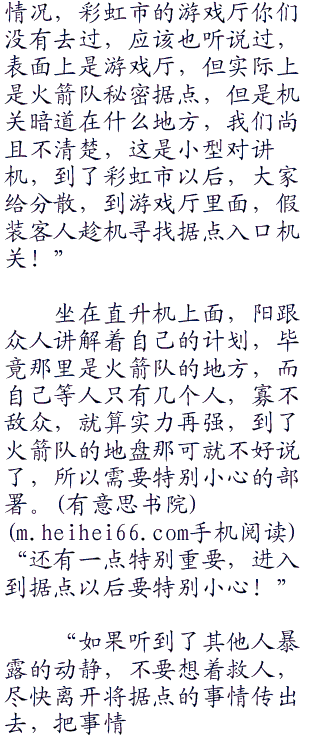 情况，彩虹市的游戏厅你们
没有去过，应该也听说过，
表面上是游戏厅，但实际上
是火箭队秘密据点，但是机
关暗道在什么地方，我们尚
且不清楚，这是小型对讲
机，到了彩虹市以后，大家
给分散，到游戏厅里面，假
装客人趁机寻找据点入口机
关！”
坐在直升机上面，阳跟
众人讲解着自己的计划，毕
竟那里是火箭队的地方，而
自己等人只有几个人，寡不
敌众，就算实力再强，到了
火箭队的地盘那可就不好说
了，所以需要特别小心的部
署。(有意思书院)
(m.heihei66.com手机阅读)
“还有一点特别重要，进入
到据点以后要特别小心！”
“如果听到了其他人暴
露的动静，不要想着救人，
尽快离开将据点的事情传出
去，把事情